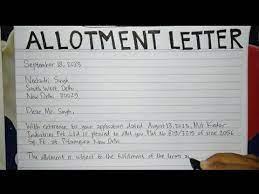 ALLOTMENT LETTER
September 18, 2023
Singh
South West Delhi
New Delhi 20025
Dear Mr. Singh,
With reference to your application dated August 13, 2023, M/s
Industries Pvt. Ltd is pleased to allot you Plot No of size 2056
Sq. Ft at New Delhi
The allotment is subject to the fulfillment of the terms